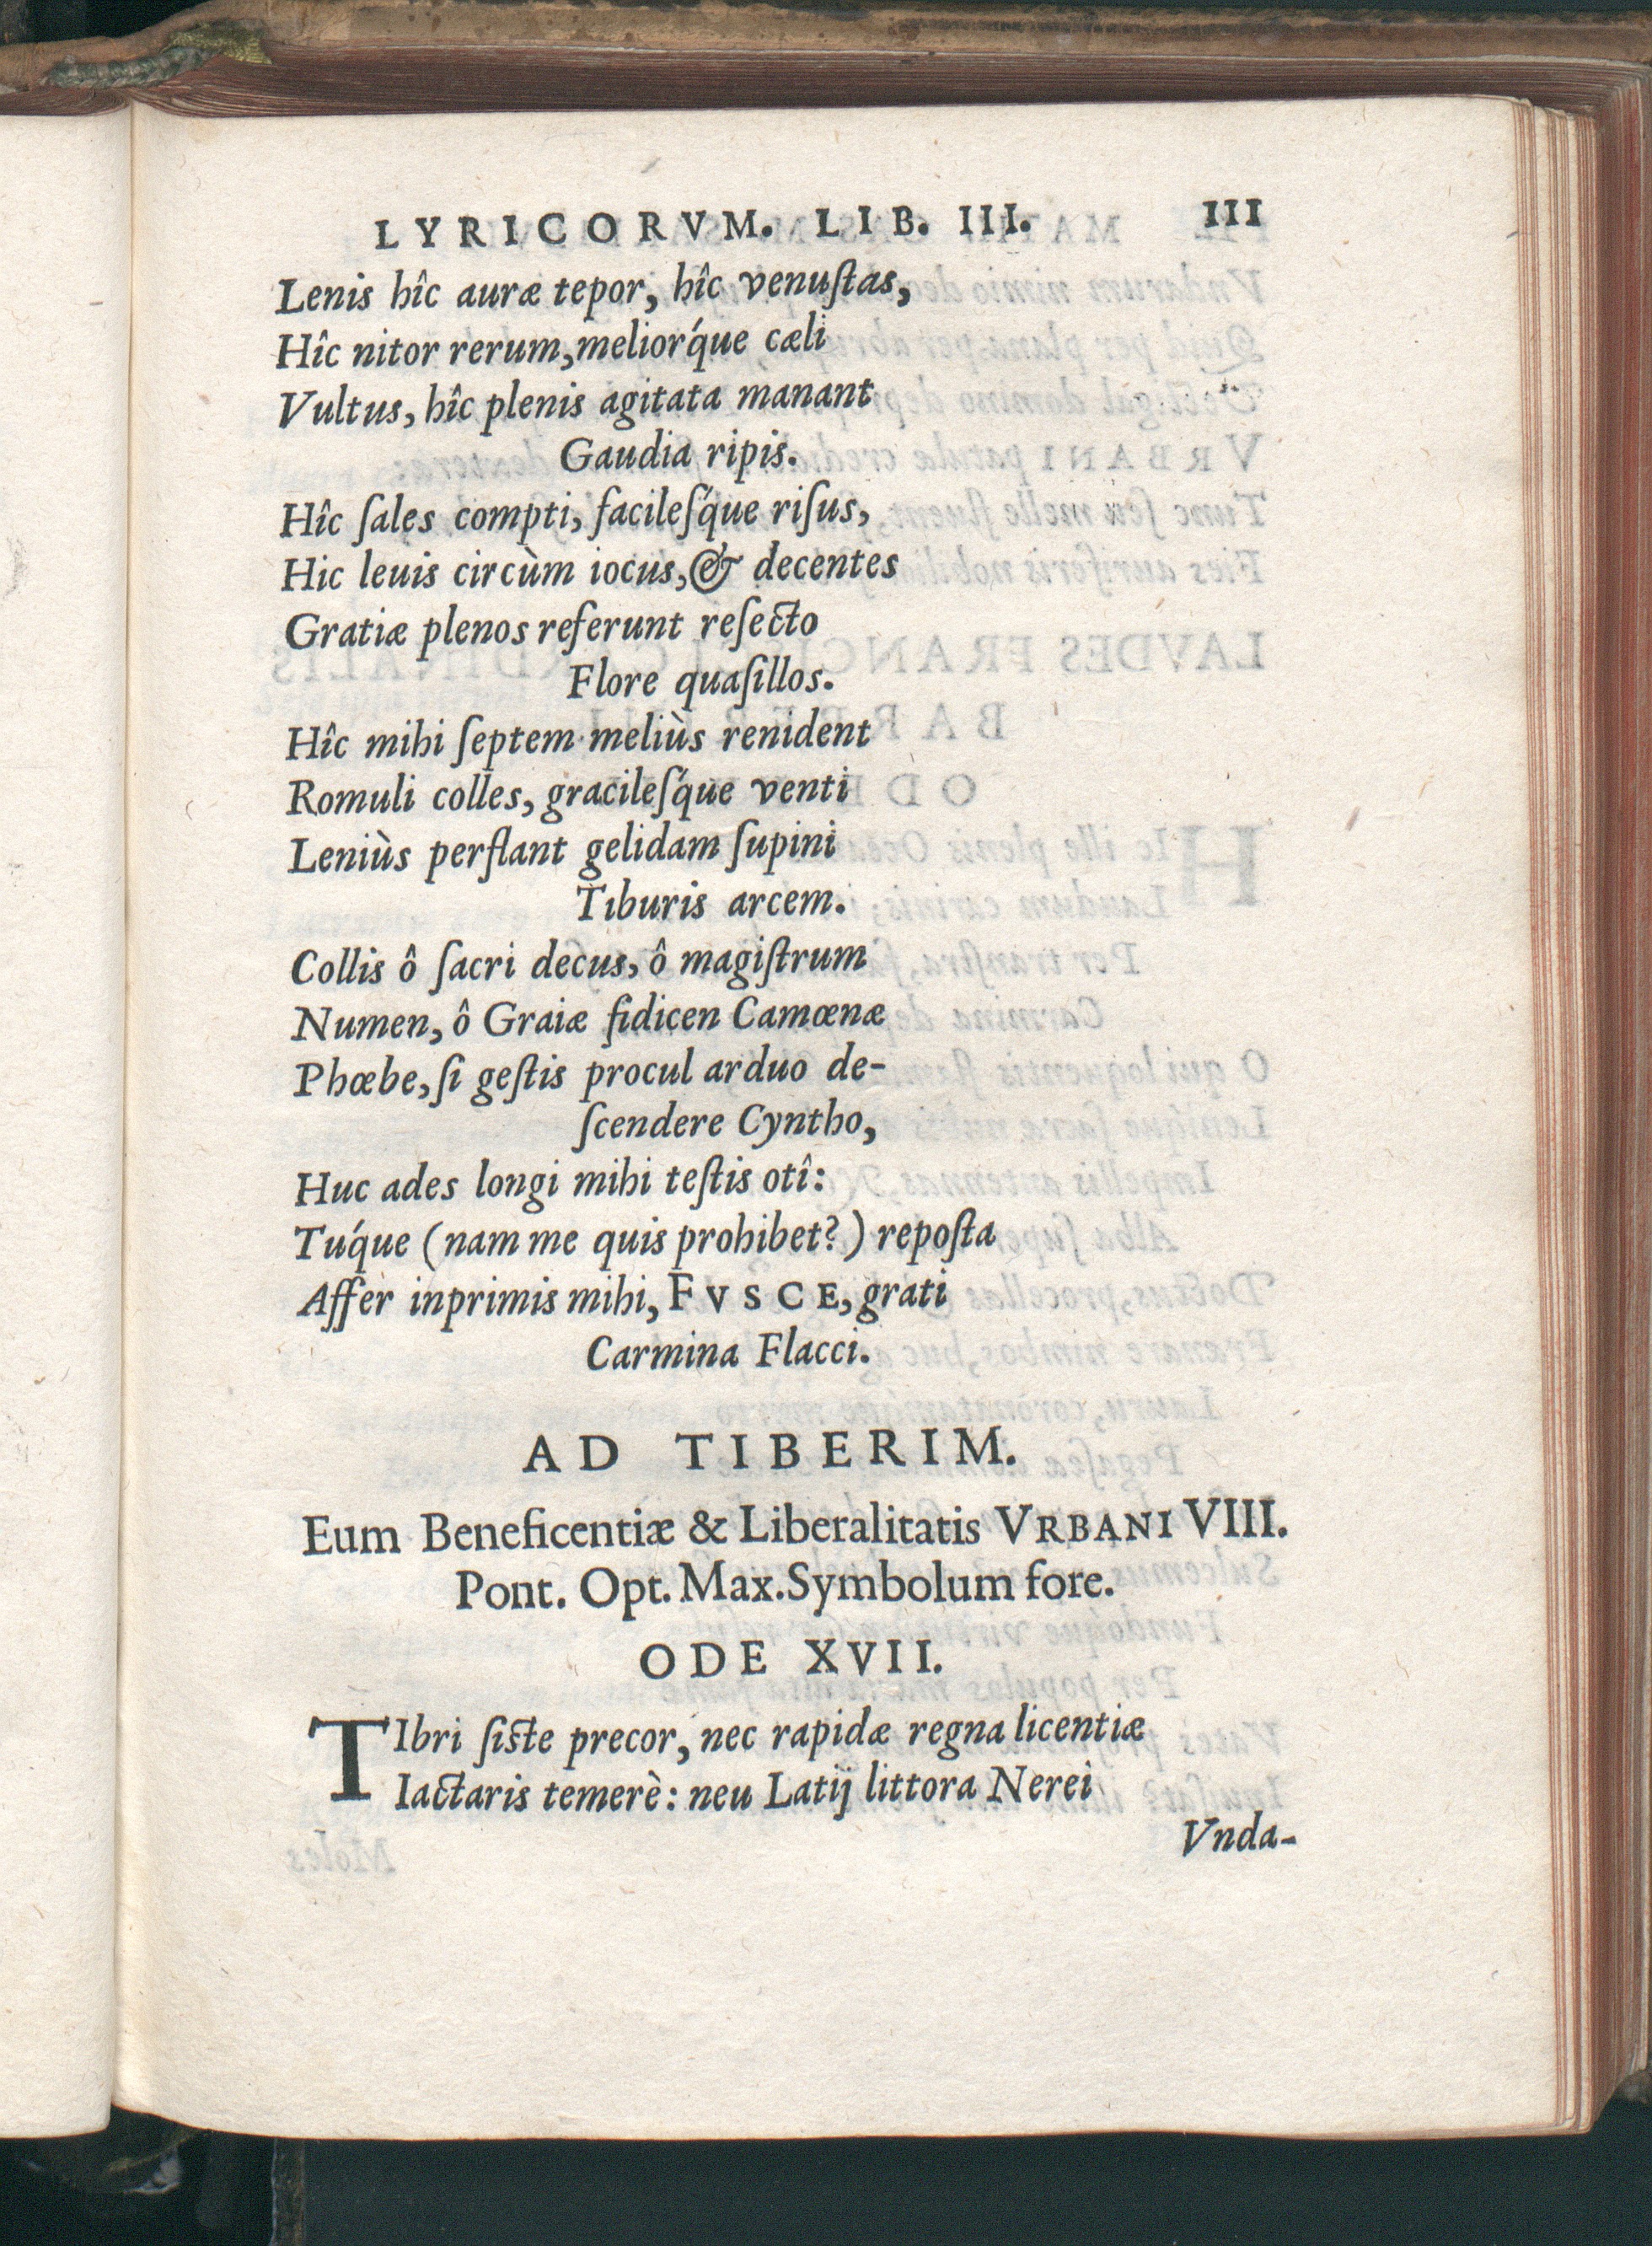 LYRICORVM. LIB. III. 111
Lenis hîc auræ tepor, hîc venuſtas,
Hîc nitor rerum, meliorq́ue cæli
Vultus, hîc plenis agitata manant
Gaudia ripis.
Hîc ſales compti, facileſq́ue riſus,
Hic leuis circùm iocus, & decentes
Gratiæ plenos referunt reſecto
Flore quaſillos.
Hîc mihi ſeptem meliùs renident
Romuli colles, gracileſq́ue venti
Leniùs perflant gelidam ſupini
Tiburis arcem.
Collis ô ſacri decus, ô magiſtrum
Numen, ô Graiæ fidicen Camœnæ
Phœbe, ſi geſtis procul arduo de-
ſcendere Cyntho,
Huc ades longi mihi teſtis otî:
Tuq́ue (nam me quis prohibet?) repoſta
Affer inprimis mihi, FVSCE, grati
Carmina Flacci.
AD TIBERIM.
Eum Beneficentiæ & Liberalitatis VRBANI VIII.
Pont. Opt. Max. Symbolum fore.
ODE XVII.
TIbri ſiſte precor, nec rapidæ regna licentiæ
Iactaris temerè: neu Latij littora Nerei
Vnda-